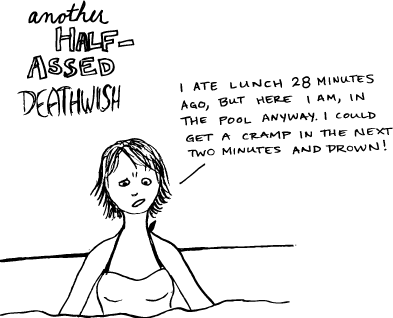 another
HALF-
ASSED
DEATHWISH
I ATE LUNCH 28 MINUTES
AGO, BUT HERE I AM, IN
THE POOL ANYWAY. I COULD
GET A CRAMP IN THE NEXT
TWO MINUTES AND DROWN!